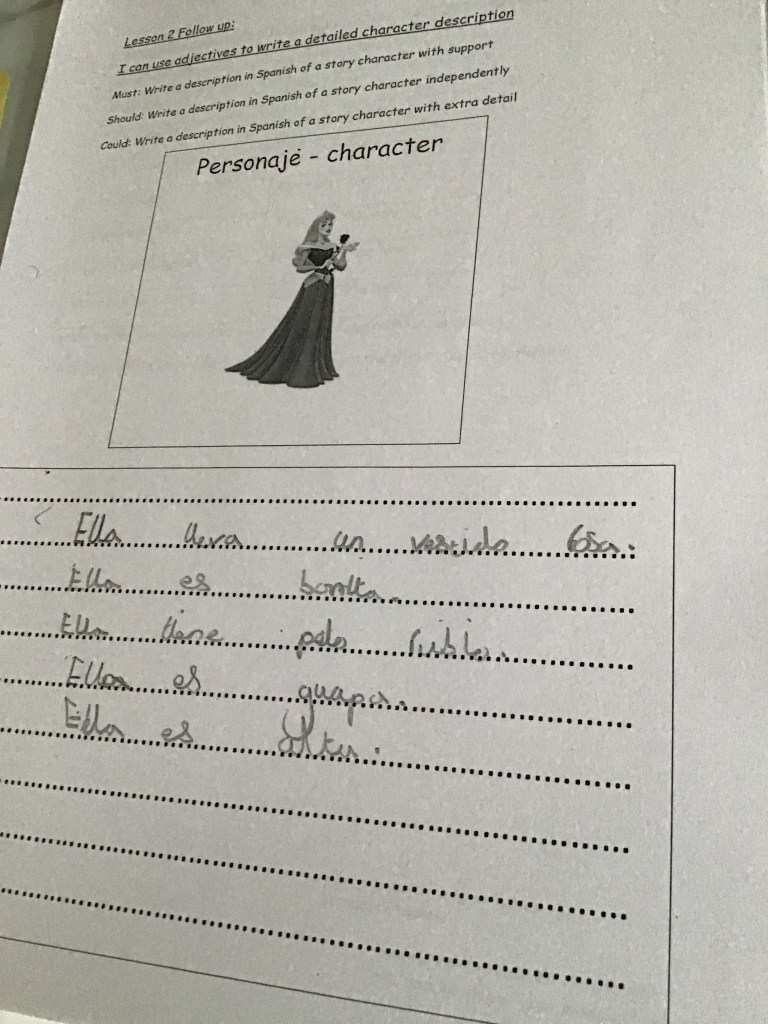 Lesson 2 Follow up:
I can use adjectives to write a detailed character description
Must: Write a description in Spanish of a story character with support
Should: Write a description in Spanish of a story character independently
Could: Write a description in Spanish of a story character with extra detail
Personaje - character
Ella lleva un vestido
Ella es bonita.
Ella tiene pelo rubio.
Ella es guapa.
Ella es alta.